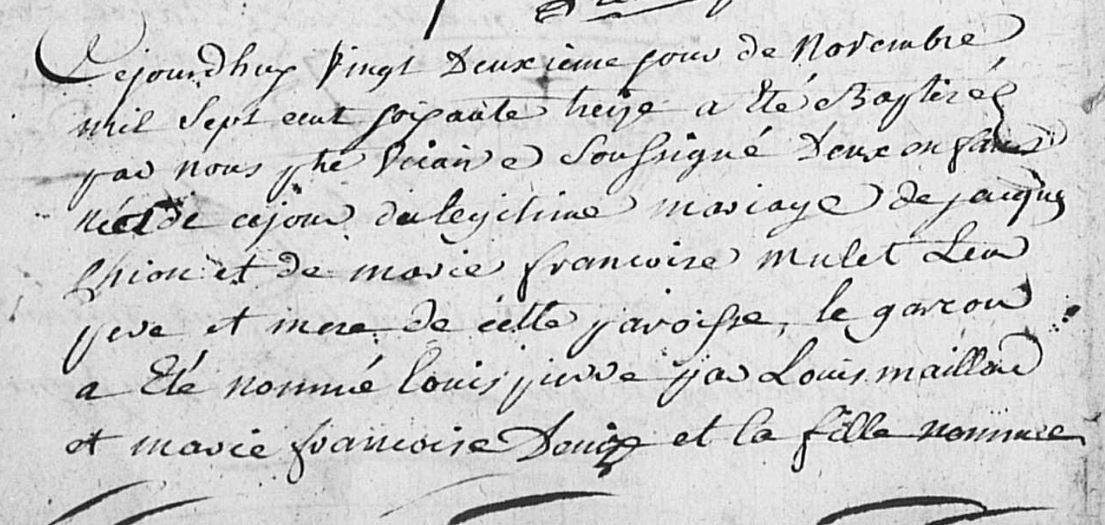 Cejourdhuy vingt Deuxieme jour de Novembre
mil sept cent soixante treize a eté Baptiséz
par nous ptre vicaire soussigné Deux enfans
néés de cejour du legitime mariage de jacques
et de marie francoise mulet Leur
pere et mere de cette paroisse, le garcon
a eté nommé louis pierre par Louis maillard
et marie francoise Denize et la fille nommée